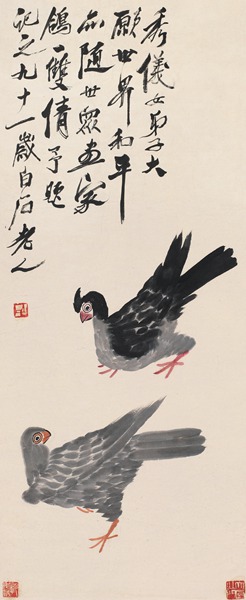 秀儀女弟子大
願世界和平
亦隨世眾畫家
鴿一雙倩予題
記之九十一歲白石老人